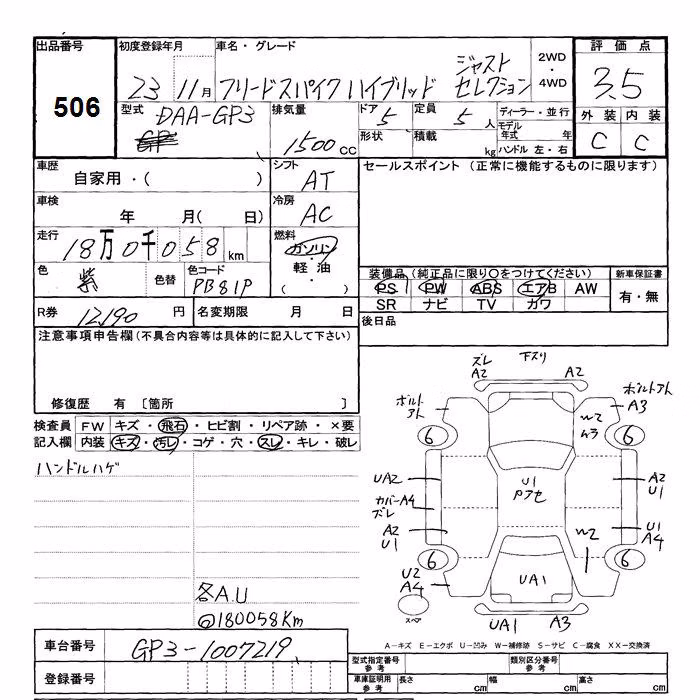 出品番号 初度登録年月 車名・グレード 2WD・4WD 評価点
506 23 11月 フリードスパイク ハイブリッド ジャスト セレクション 3.5
型式 DAA-GP3 排気量 1500cc ドア 5 定員 5人 ディーラー・並行 外装 内装
形状 積載 kg モデル年式 年 ハンドル 左・右 C C
車歴 自家用・( ) シフト AT セールスポイント (正常に機能するものに限ります)
車検 年 月( 日) 冷房 AC
走行 18万0千058km 燃料 ガソリン・軽油 ( )
色 紫 色替 色コード PB81P 装備品(純正品に限り○をつけてください) 新車保証書
PS PW ABS エアB AW 有・無
SR ナビ TV カワ
R券 12190円 名変期限 月 日 後日品
注意事項申告欄(不具合内容等は具体的に記入して下さい)
修復歴 有 〔箇所 〕
検査員 FW キズ・飛石・ヒビ割・リペア跡・×要
記入欄 内装 キズ・汚レ・コゲ・穴・スレ・キレ・破レ
ハンドルハゲ
各A.U
@180058Km
ズレ A2 下スリ A2
ボルトアト ボルトアト A3
W2 ムラ
6 6
UA2 U1 Pアセ A2 U1
カバーA4 ズレ
A2 U1 W2 U1 A4
6 6
U2 A4 UA1
スペア UA1 A3
A−キズ E−エクボ U−凹み W−補修跡 S−サビ C−腐食 XX−交換済
車台番号 GP3-1007219 型式指定番号 参考 類別区分番号 参考
登録番号 車庫証明用 参考 長さ cm 幅 cm 高さ cm